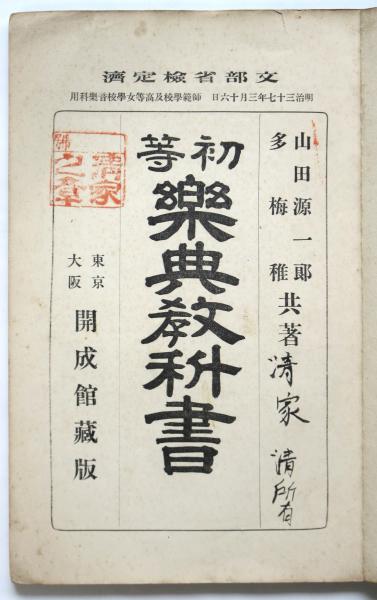 文部省檢定濟
明治三十七年三月十六日 師範學校及高等女學校音樂科用
山田源一郎
多梅稚
共著
清家 清所有
初等
樂典教科書
東京
大阪
開成館藏版
清家